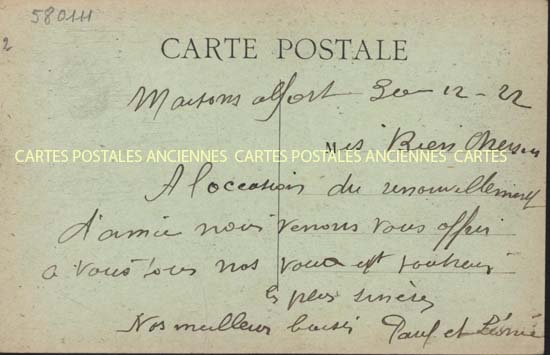 580111
2
CARTE POSTALE
Maisons alfort 30 12 - 22
Mes Biens Chers
CARTES POSTALES ANCIENNES CARTES POSTALES ANCIENNES CARTES
A l'occasion du renouvellement
d'année nous venons vous offrir
a vous tous nos vœux et souhaits
les plus sincères
Nos meilleurs baisers Paul et Léonie